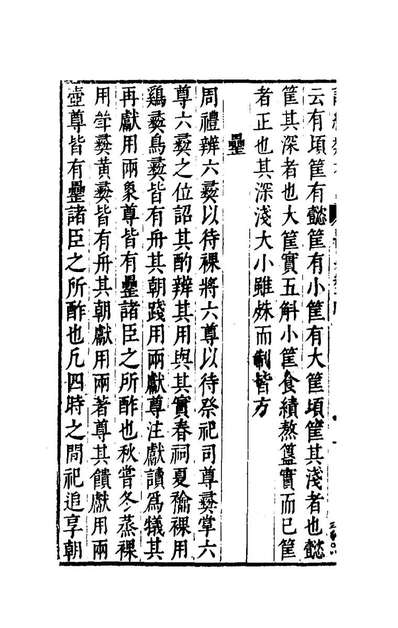 云有頃筐有懿筐有小筐有大筐頃筐其淺者也懿
筐其深者也大筐實五斛小筐食績熬簋實而已筐
者正也其深淺大小雖殊而制皆方
罍
周禮辨六彝以待祼將六尊以待祭祀司尊彝掌六
尊六彝之位詔其酌辨其用與其實春祠夏禴祼用
鷄彝鳥彝皆有舟其朝踐用兩獻尊注獻讀爲犧其
再獻用兩象尊皆有罍諸臣之所酢也秋嘗冬蒸祼
用斝彝黃彝皆有舟其朝獻用兩著尊其饋獻用兩
壺尊皆有罍諸臣之所酢也凡四時之間祀追享朝